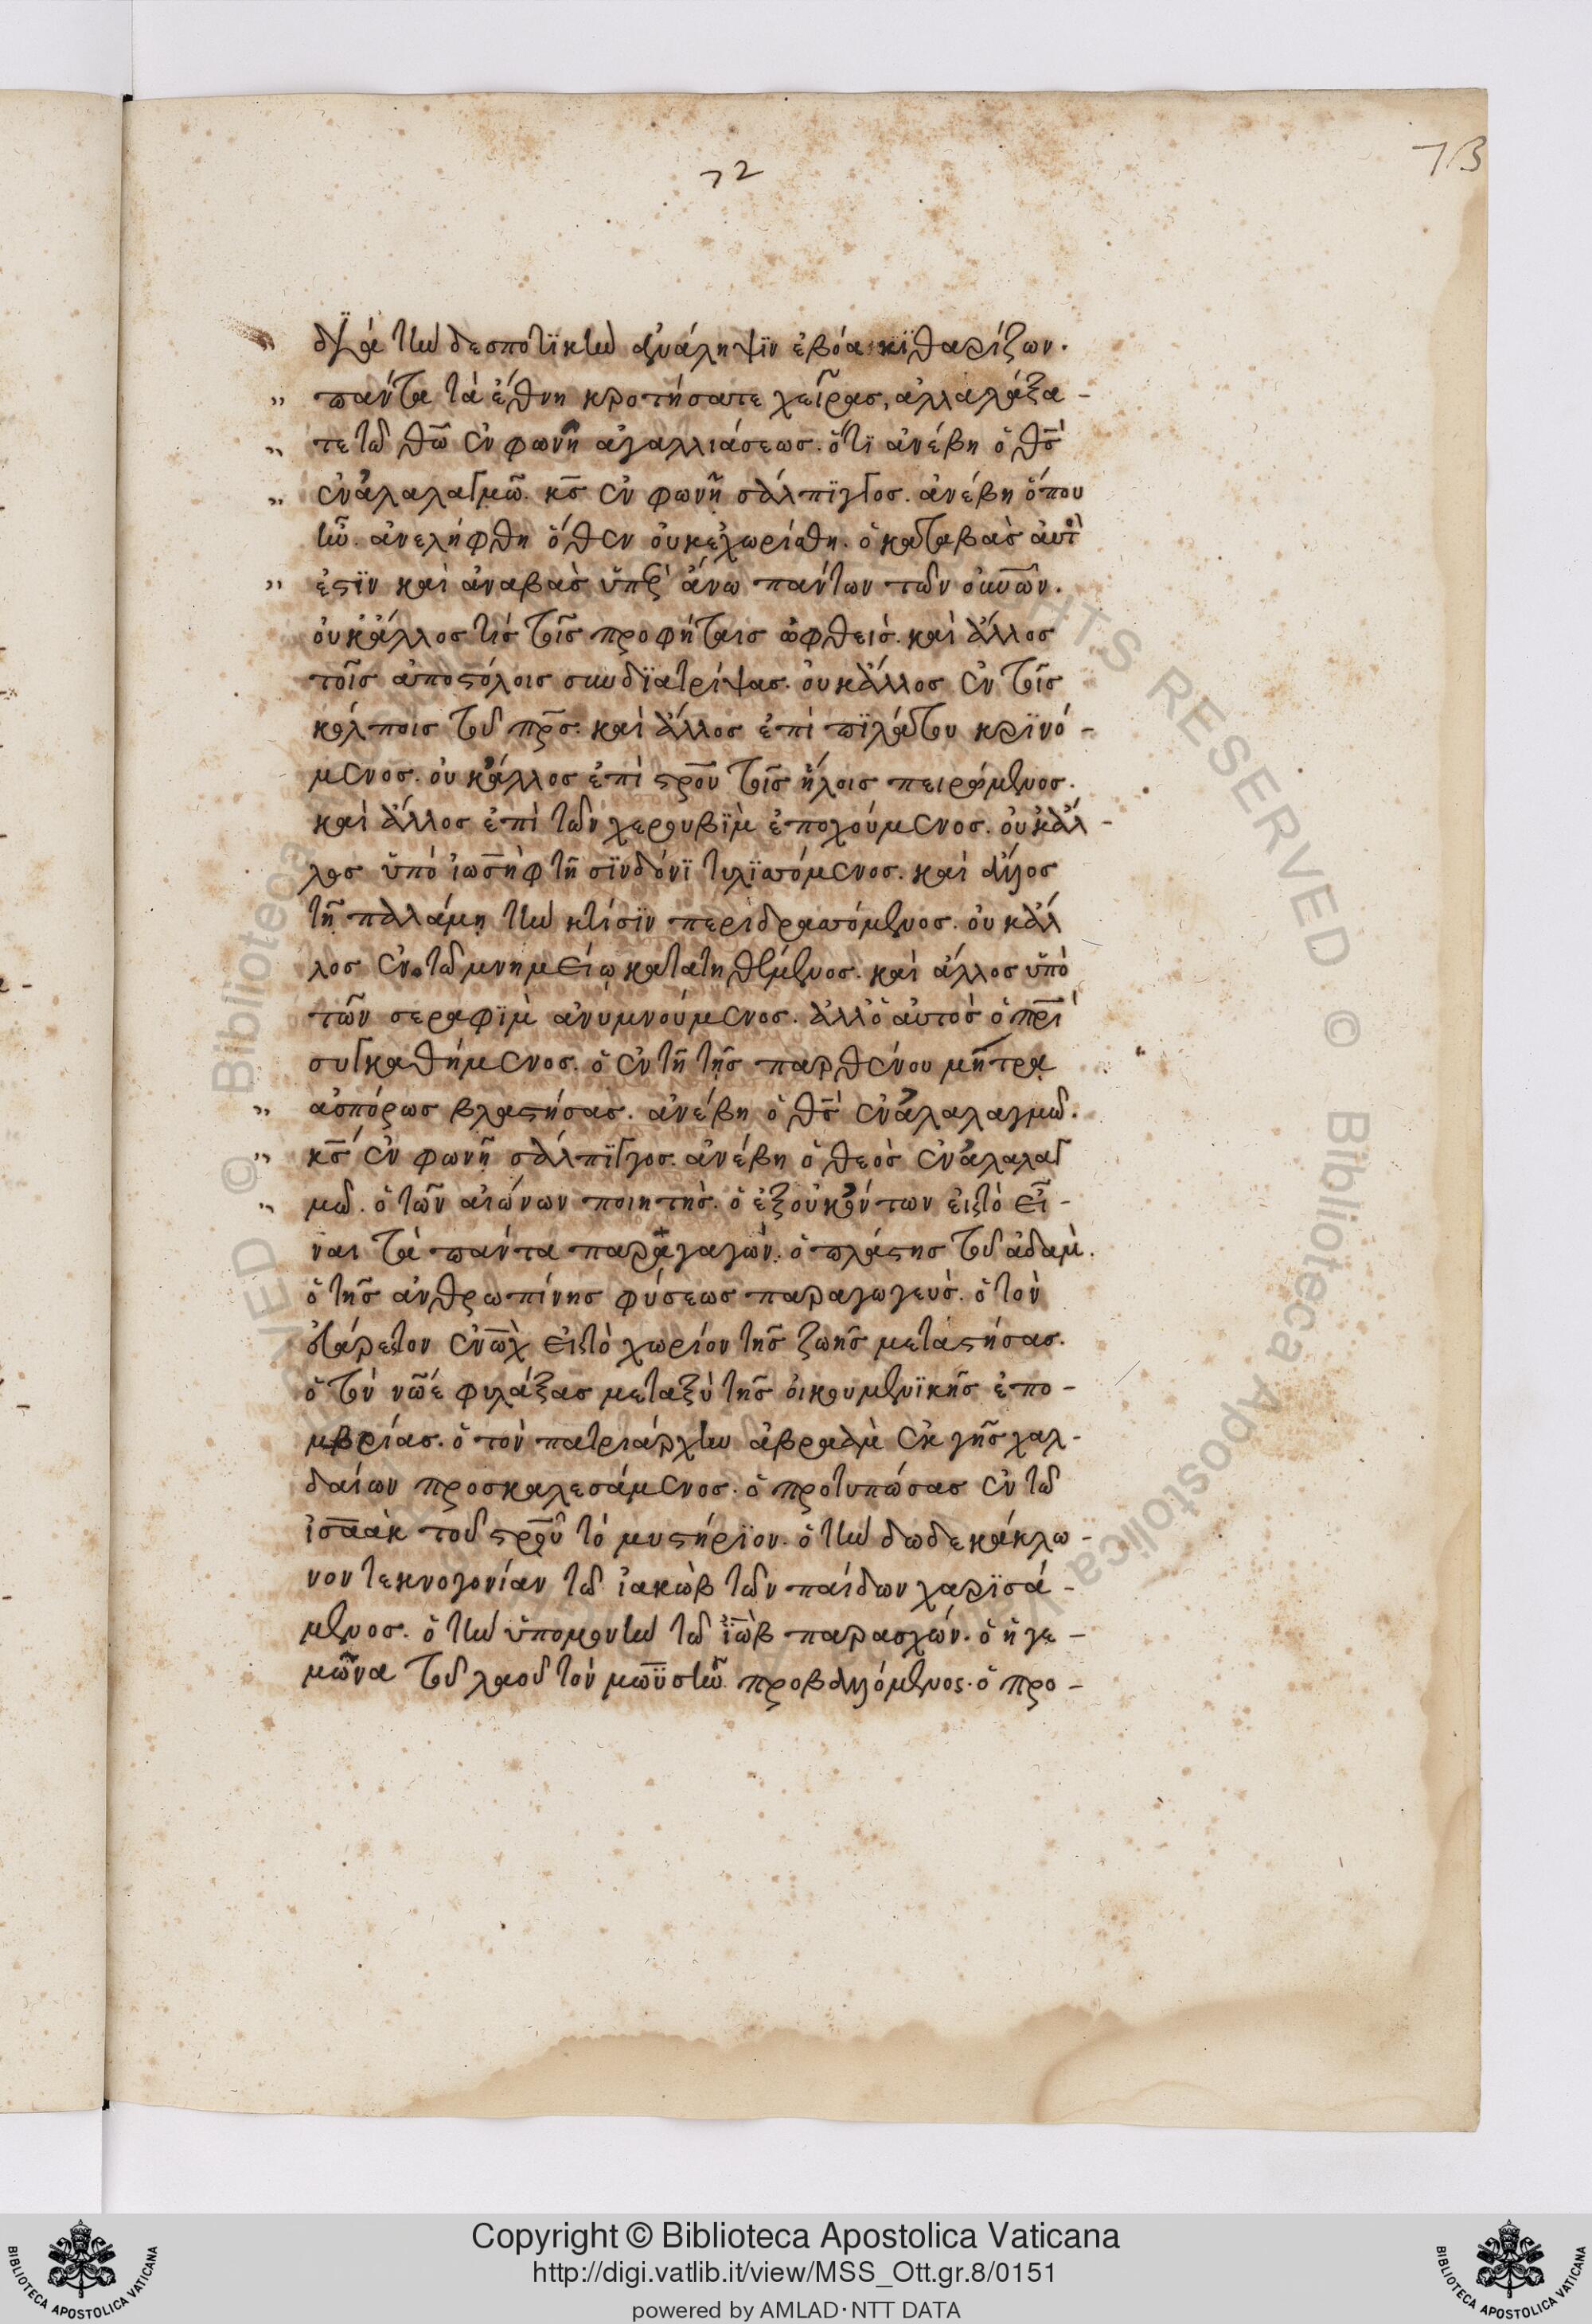 72
73
τὴν δεσποτϊκὴν ἀνάληψϊν ἐβόα κϊθαρίζων.
πάντα τὰ ἔθνη κροτήσατε χεῖρας, ἀλλαλάξα -
τε τῶ θ̅ω̅ ἐν φωνῆ ἀγαλλιάσεως. ὅτϊ ἀνέβη ὁ θ̅ς̅
ἐν ἀλαλαγμῶ. κ̅ς̅ ἐν φωνῆ σάλπϊγγος. ἀνέβη ὅπου
ἦν. ἀνελήφθη ὅθεν οὐκ ἐχωρίσθη. ὁ καταβὰς αὐτὸ
ἐστϊν καὶ ἀναβὰς ὑπὲρ ἄνω πάντων τῶν οὐ̅ν̅ῶν.
οὐκ ἄλλος τίς τοῖς προφήταις ὠφθεὶς. καὶ ἄλλος
τοῖς ἀποστόλοις συνδϊατρίψας. οὐκ ἄλλος ἐν τοῖς
κόλποις τοῦ π̅ρ̅ς̅. καὶ ἄλλος ἐπὶ πϊλάτου κρϊνό -
μενος. οὐκ ἄλλος ἐπὶ σ̅ρ̅ο̅υ̅ τοῖς ἥλοις πειρόμενος.
καὶ ἄλλος ἐπὶ τῶν χερουβϊμ ἐποχούμενος. οὐκ ἄλ -
λος ὑπὸ ἰωσὴφ τῆ σϊνδόνϊ τυλϊττόμενος. καὶ ἄλλος
τῆ παλάμη τὴν κτίσϊν περιδραττόμενος. οὐκ ἄλ
λος ἐν τῶ μνημείῳ κατατηθέμενος. καὶ ἄλλος ὑπὸ
τῶν σεραφϊμ ἀνυμνούμενος. ἀλλ ὁ αὐτὸς ὁ π̅ρ̅ι̅
συγκαθήμενος. ὁ ἐν τῆ τῆς παρθένου μήτρα
ἀσπόρως βλαστήσας. ἀνέβη ὁ θ̅ς̅ ἐν ἀλαλαγμῶ.
κ̅ς̅ ἐν φωνῆ σάλπϊγγος. ἀνέβη ὁ θεὸς ἐν ἀλαλαγ
μῶ. ὁ τῶν αἰώνων ποιητὴς. ὁ ἐξ οὐκ ὄντων εἰς τὸ εἶ -
ναι τὰ πάντα παραγαγὼν. ὁ πλάστης τοῦ ἀδαμ.
ὁ τῆς ἀνθρωπίνης φύσεως παραγωγεὺς. ὁ τὸν
εὐάρεστον ἐνὼχ εἰς τὸ χωρίον τῆς ζωῆς μεταστήσας.
ὁ τὸν νῶε φυλάξας μεταξὺ τῆς οἰκουμενϊκῆς ἐπο -
μβρίας. ὁ τὸν πατριάρχην ἀβραὰμ ἐκ γῆς χαλ -
δαίων προσκαλεσάμενος. ὁ προτυπώσας ἐν τῶ
ἰσαὰκ τοῦ σ̅ρ̅ο̅υ̅ τὸ μυστήρϊον. ὁ τὴν δωδεκάκλω -
νον τεκνογονίαν τῶ ἰακὼβ τῶν παίδων χαρϊσά -
μενος. ὁ τὴν ὑπομονὴν τῶ ἰὼβ παρασχών. ὁ ἡγε -
μῶνα τοῦ λαοῦ τὸν μωϋσῆν προβαλλόμενος. ὁ προ -
Copyright © Biblioteca Apostolica Vaticana
http://digi.vatlib.it/view/MSS_Ott.gr.8/0151
powered by AMLAD·NTT DATA